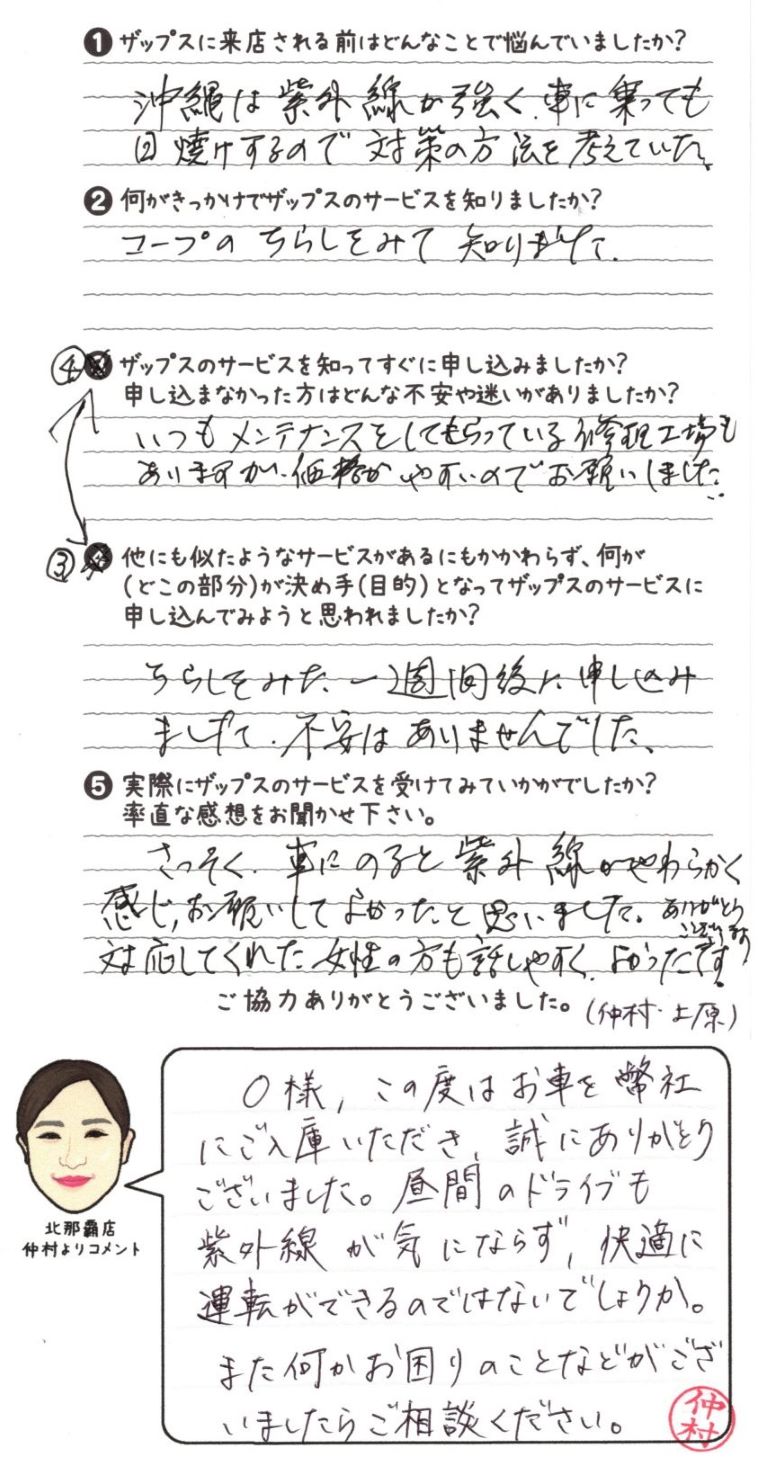 ❶ ザップスに来店される前はどんなことで悩んでいましたか?
沖縄は紫外線が強く、車に乗っても
日焼けするので対策の方法を考えていた。
❷ 何がきっかけでザップスのサービスを知りましたか?
コープのちらしをみて知りました。
④ ザップスのサービスを知ってすぐに申し込みましたか?
申し込まなかった方はどんな不安や迷いがありましたか?
いつもメンテナンスをしてもらっている修理工場も
ありますが、価格がやすいのでお願いしました。
③ 他にも似たようなサービスがあるにもかかわらず、何が
(どこの部分)が決め手(目的)となってザップスのサービスに
申し込んでみようと思われましたか?
ちらしをみた一週間後に申し込み
ました。不安はありませんでした。
❺ 実際にザップスのサービスを受けてみていかがでしたか?
率直な感想をお聞かせ下さい。
さっそく、車にのると紫外線がやわらかく
感じ、お願いしてよかったと思いました。ありがとう
ございます
対応してくれた女性の方も話しやすく、よかったです。
ご協力ありがとうございました。
(仲村・上原)
O様、この度はお車を幣社
にご入庫いただき、誠にありがとう
ございました。昼間のドライブも
紫外線が気にならず、快適に
運転ができるのではないでしょうか。
また何かお困りのことなどがござ
いましたらご相談ください。
仲村
北那覇店
仲村よりコメント